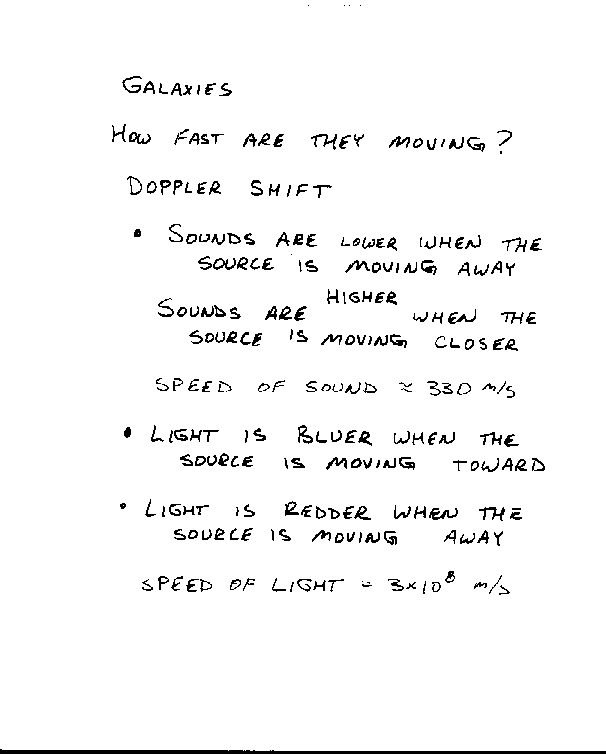 GALAXIES
HOW FAST ARE THEY MOVING?
DOPPLER SHIFT
• SOUNDS ARE LOWER WHEN THE
SOURCE IS MOVING AWAY
SOUNDS ARE HIGHER WHEN THE
SOURCE IS MOVING CLOSER
SPEED OF SOUND ≈ 330 m/s
• LIGHT IS BLUER WHEN THE
SOURCE IS MOVING TOWARD
• LIGHT IS REDDER WHEN THE
SOURCE IS MOVING AWAY
SPEED OF LIGHT = 3×10⁸ m/s